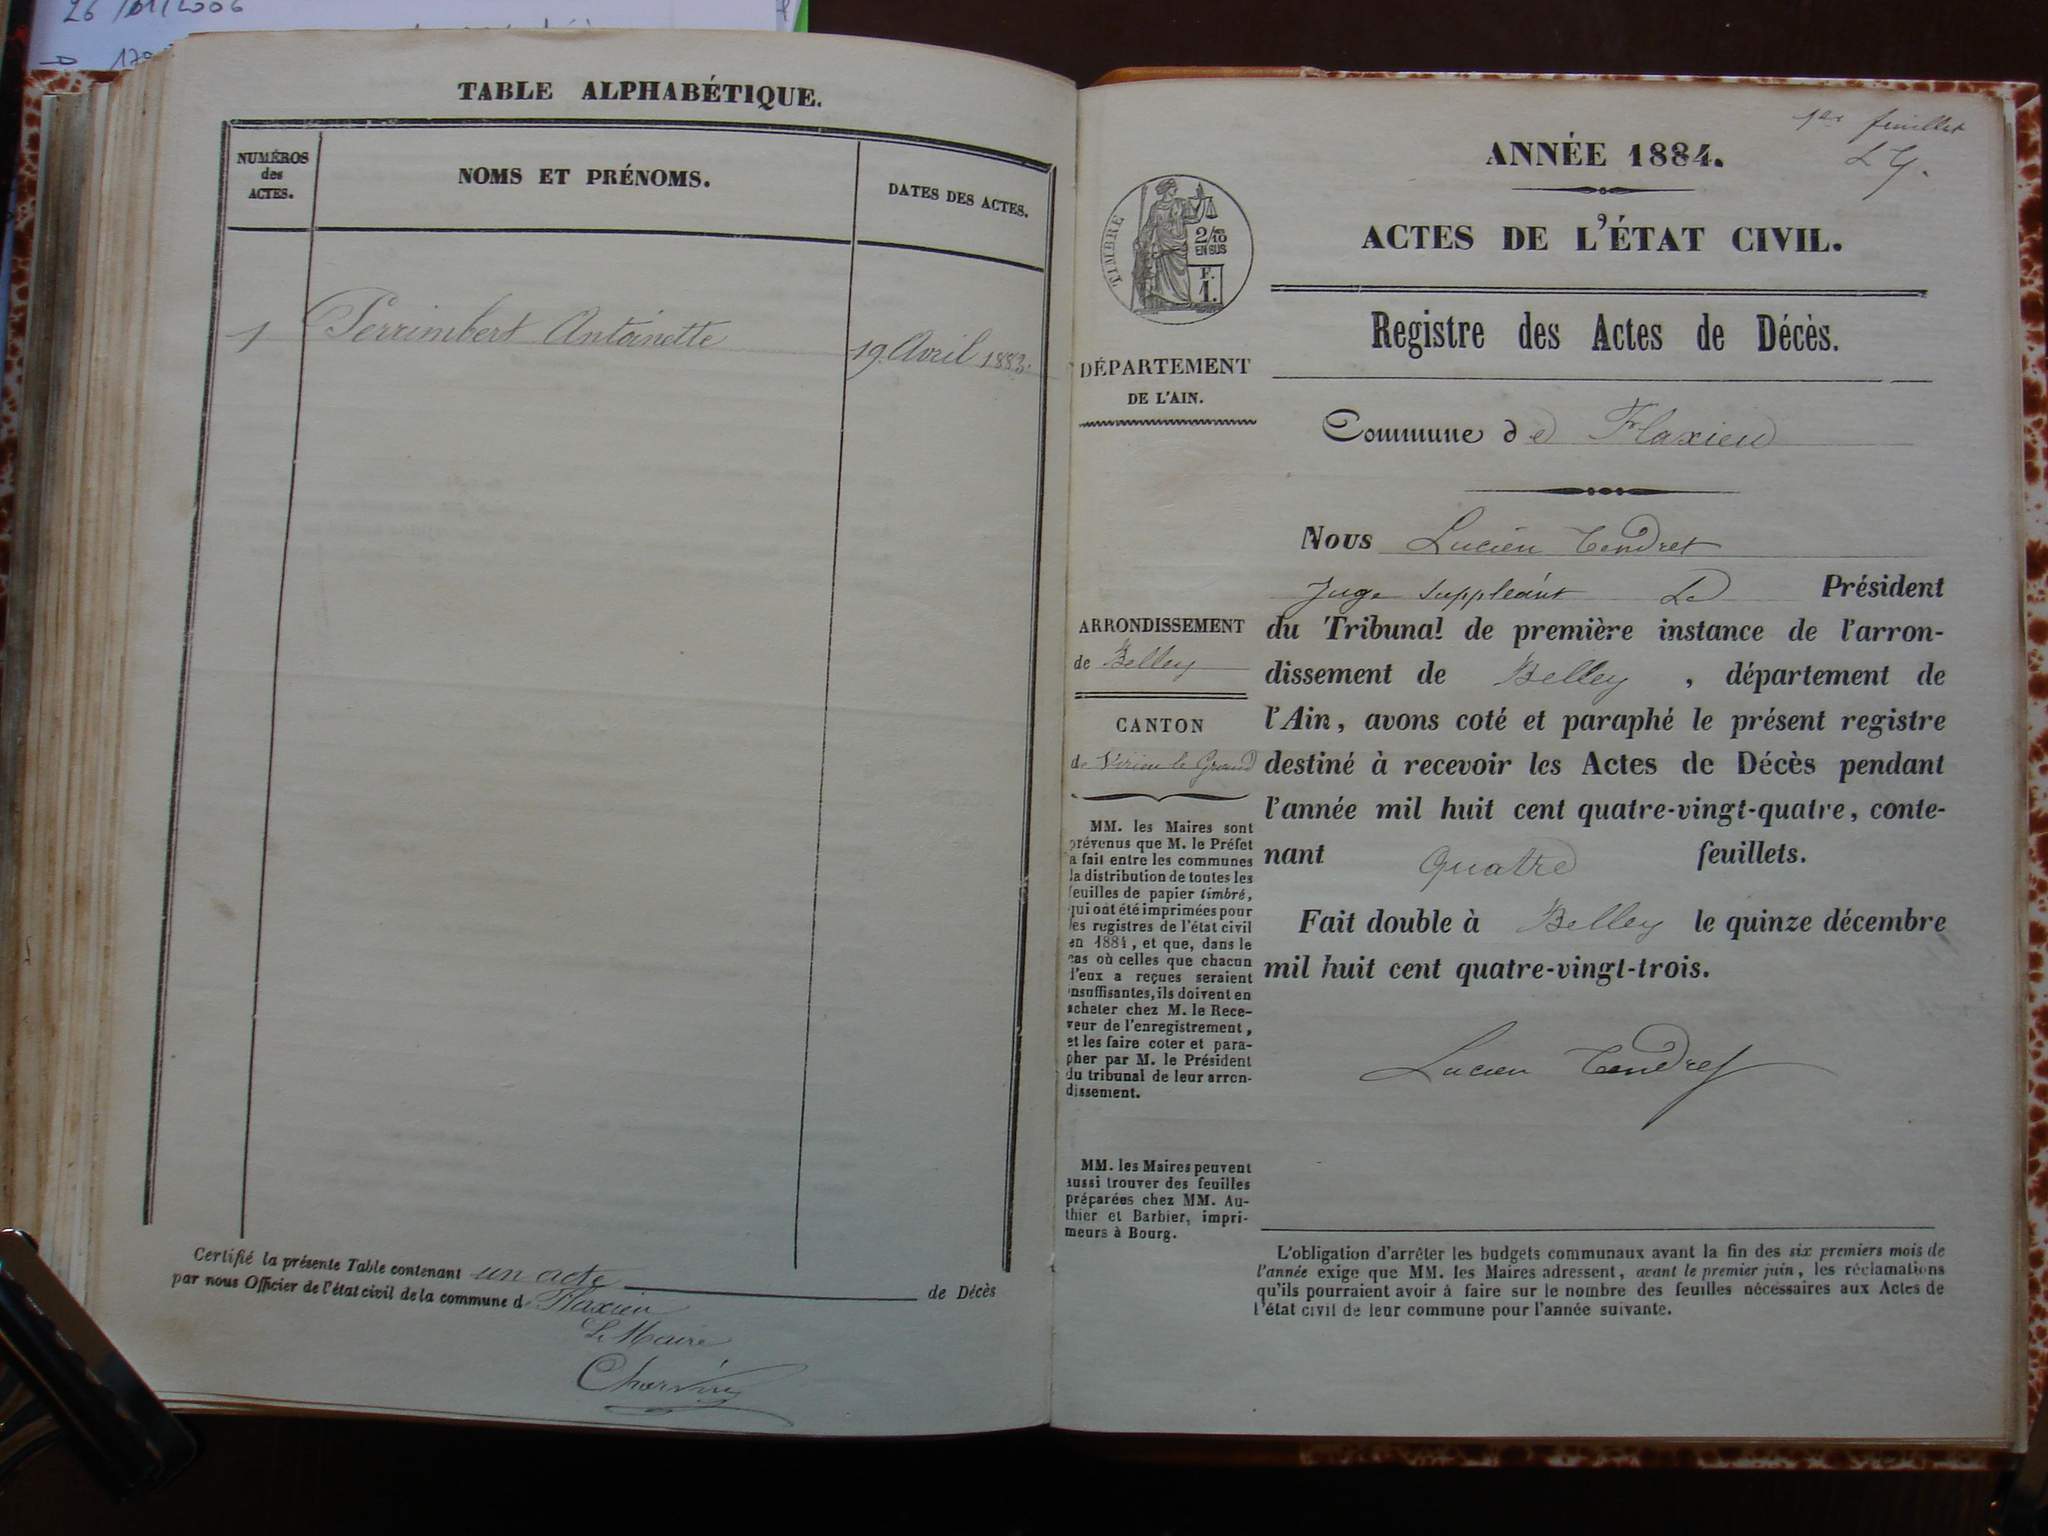 26/01/2006
TABLE ALPHABÉTIQUE.
NUMÉROS
des
ACTES.
NOMS ET PRÉNOMS.
DATES DES ACTES.
1 Perrimbert Antoinette 19 Avril 1883.
Certifié la présente Table contenant un acte de Décès
par nous Officier de l'état civil de la commune de Flaxieu
Le Maire
Charvin
1er feuillet
ANNÉE 1884.
ACTES DE L'ÉTAT CIVIL.
TIMBRE
2/10
EN SUS
F.
1.
Registre des Actes de Décès.
DÉPARTEMENT
DE L'AIN.
Commune de Flaxieu
Nous Lucien Tendret
Juge suppléant Le Président
du Tribunal de première instance de l'arron-
dissement de Belley, département de
l'Ain, avons coté et paraphé le présent registre
destiné à recevoir les Actes de Décès pendant
l'année mil huit cent quatre-vingt-quatre, conte-
nant quatre feuillets.
Fait double à Belley le quinze décembre
mil huit cent quatre-vingt-trois.
Lucien Tendret
ARRONDISSEMENT
de Belley
CANTON
de Virieu le Grand
MM. les Maires sont
prévenus que M. le Préfet
a fait entre les communes
la distribution de toutes les
feuilles de papier timbré,
qui ont été imprimées pour
les registres de l'état civil
en 1884, et que, dans le
cas où celles que chacun
d'eux a reçues seraient
insuffisantes, ils doivent en
acheter chez M. le Rece-
veur de l'enregistrement,
et les faire coter et para-
pher par M. le Président
du tribunal de leur arron-
dissement.
MM. les Maires peuvent
aussi trouver des feuilles
préparées chez MM. Au-
thier et Barbier, impri-
meurs à Bourg.
L'obligation d'arrêter les budgets communaux avant la fin des six premiers mois de
l'année exige que MM. les Maires adressent, avant le premier juin, les réclamations
qu'ils pourraient avoir à faire sur le nombre des feuilles nécessaires aux Actes de
l'état civil de leur commune pour l'année suivante.